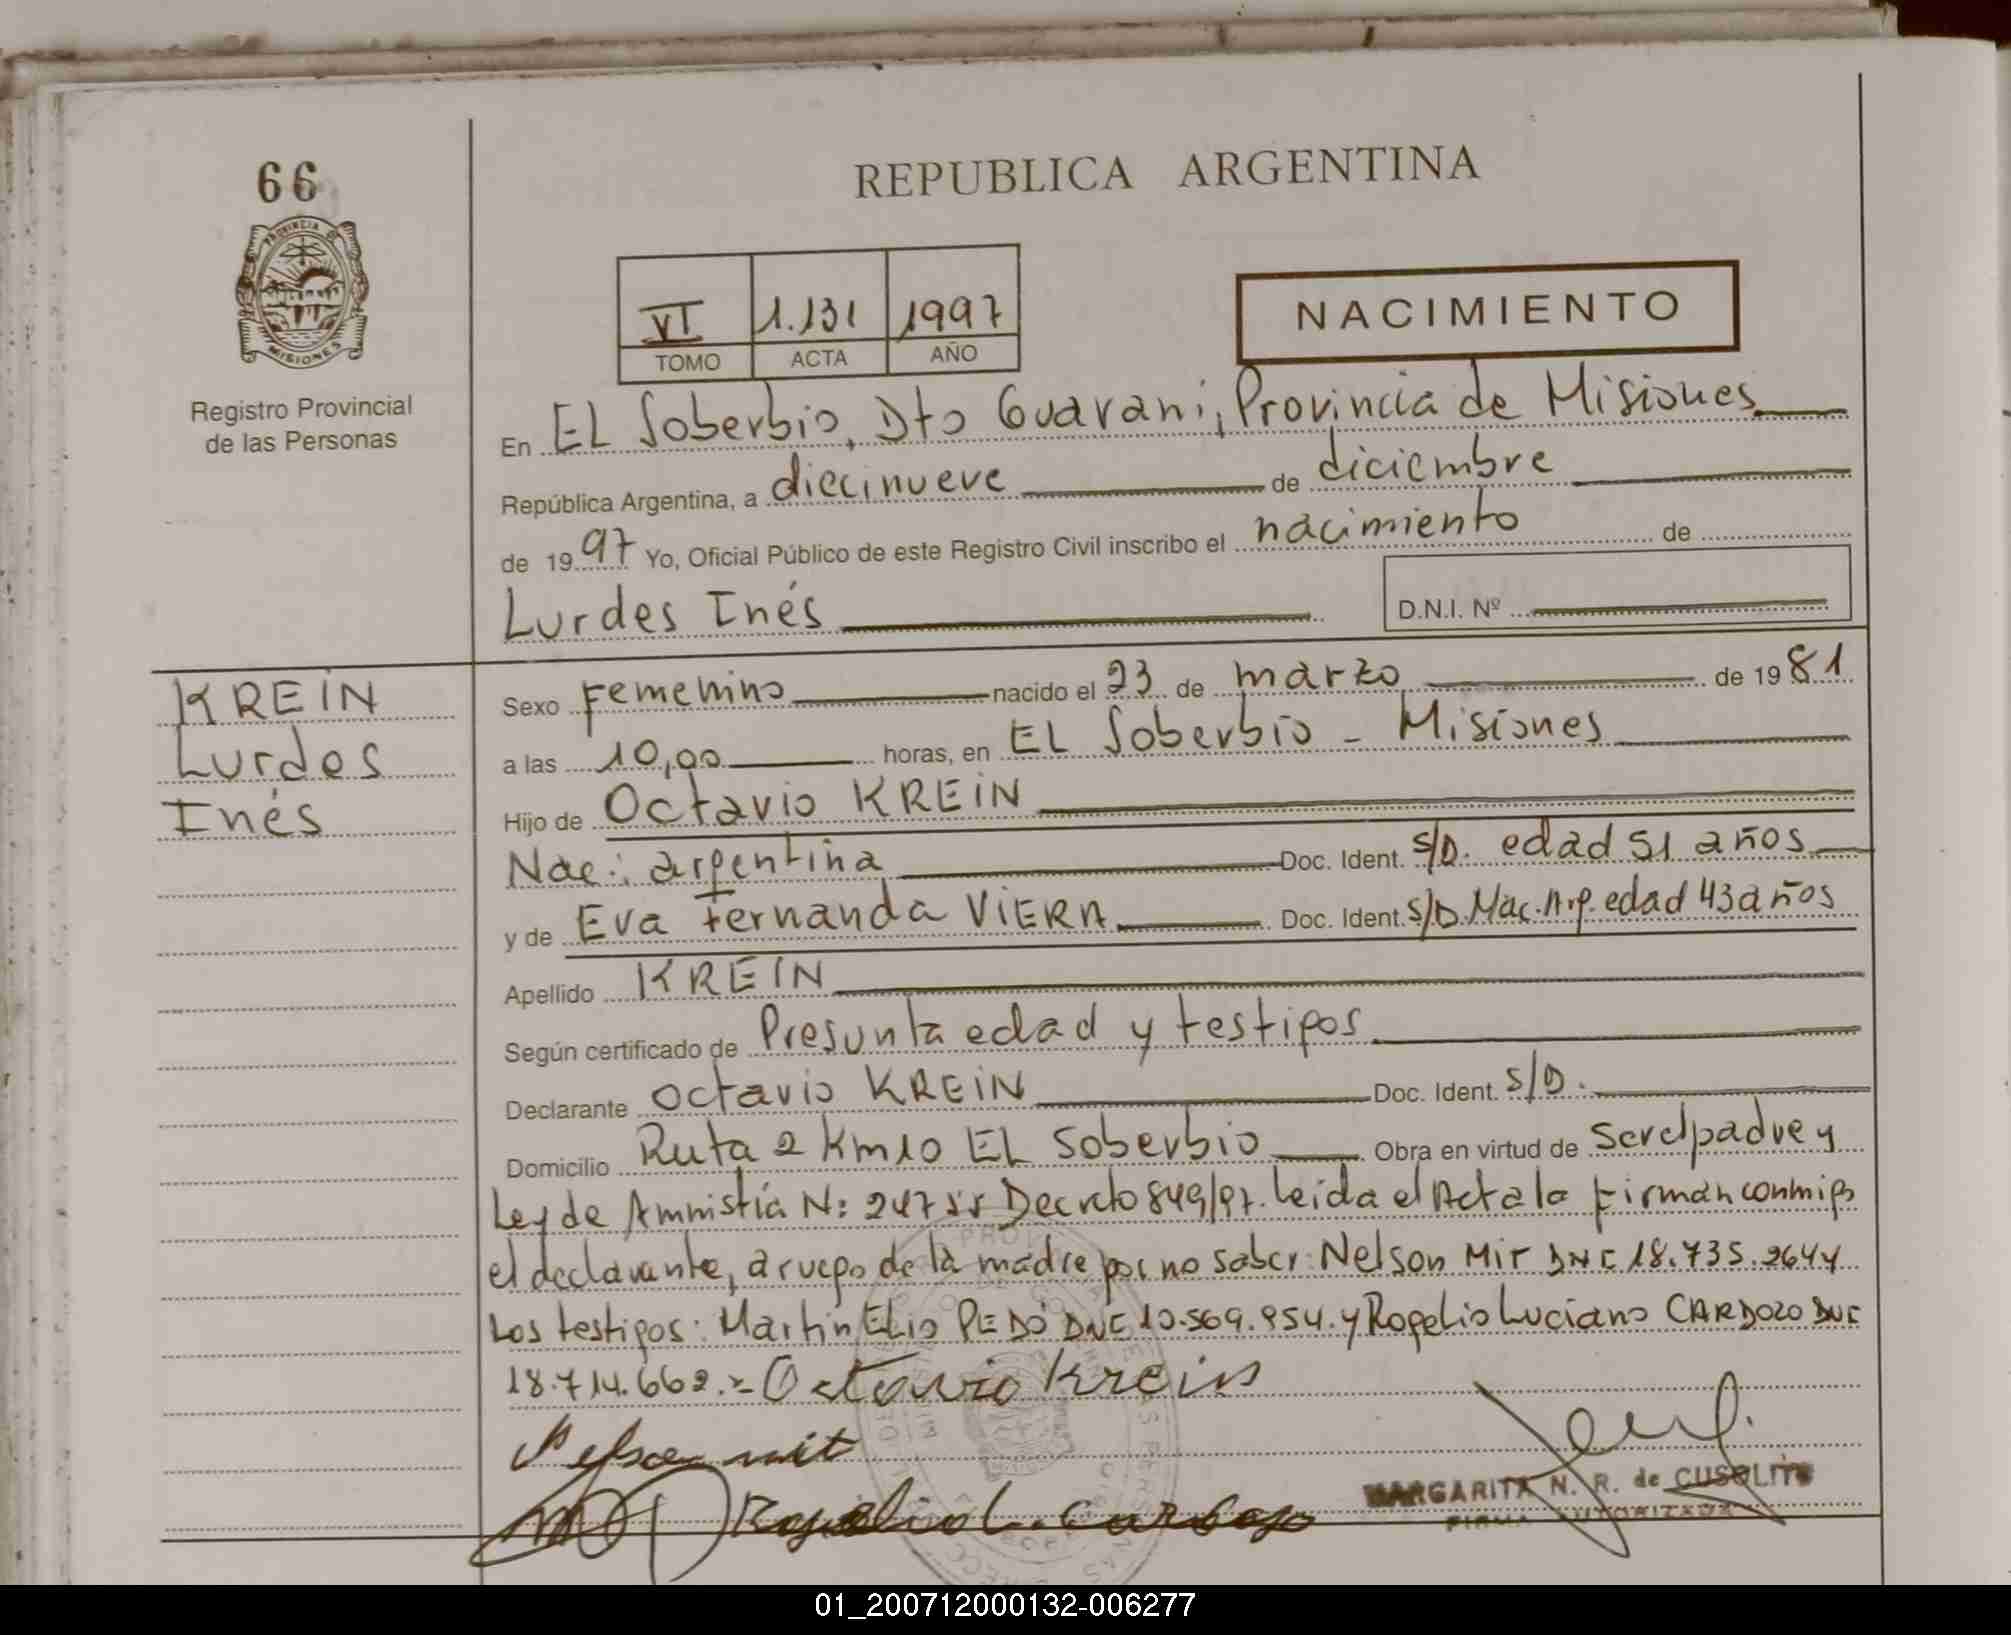 66
PROVINCIA DE
MISIONES
Registro Provincial
de las Personas
REPUBLICA ARGENTINA
VI 1.131 1997
TOMO ACTA AÑO
NACIMIENTO
En EL Soberbio, Dto Guarani, Provincia de Misiones
República Argentina, a diecinueve de diciembre
de 1997 Yo, Oficial Público de este Registro Civil inscribo el nacimiento de
Lurdes Inés D.N.I. Nº
KREIN
Lurdes
Inés
Sexo Femenino nacido el 23 de marzo de 1981
a las 10,00 horas, en EL Soberbio - Misiones
Hijo de Octavio KREIN
Nac: argentina Doc. Ident. S/D. edad 51 años
y de Eva Fernanda VIERA Doc. Ident. S/D. Nac. Arg. edad 43 años
Apellido KREIN
Según certificado de Presunta edad y testigos
Declarante Octavio KREIN Doc. Ident. S/D.
Domicilio Ruta 2 Km 10 EL Soberbio Obra en virtud de ser el padre y
Ley de Amnistía N: Decreto 849/97. Leida el Acta la firman conmigo
el declarante, a ruego de la madre por no saber: Nelson Mit DNI 18.735.264 y
Los testigos: Martin Elio PEDÓ DNI 10.569.954. y Rogelio Luciano CARDOZO DNI
18.714.662.= Octavio Krein
Nelson mit
Rogelio L. Cardozo
MARGARITA N. R. de CUSOLITO
FIRMA AUTORIZADA
01_200712000132-006277